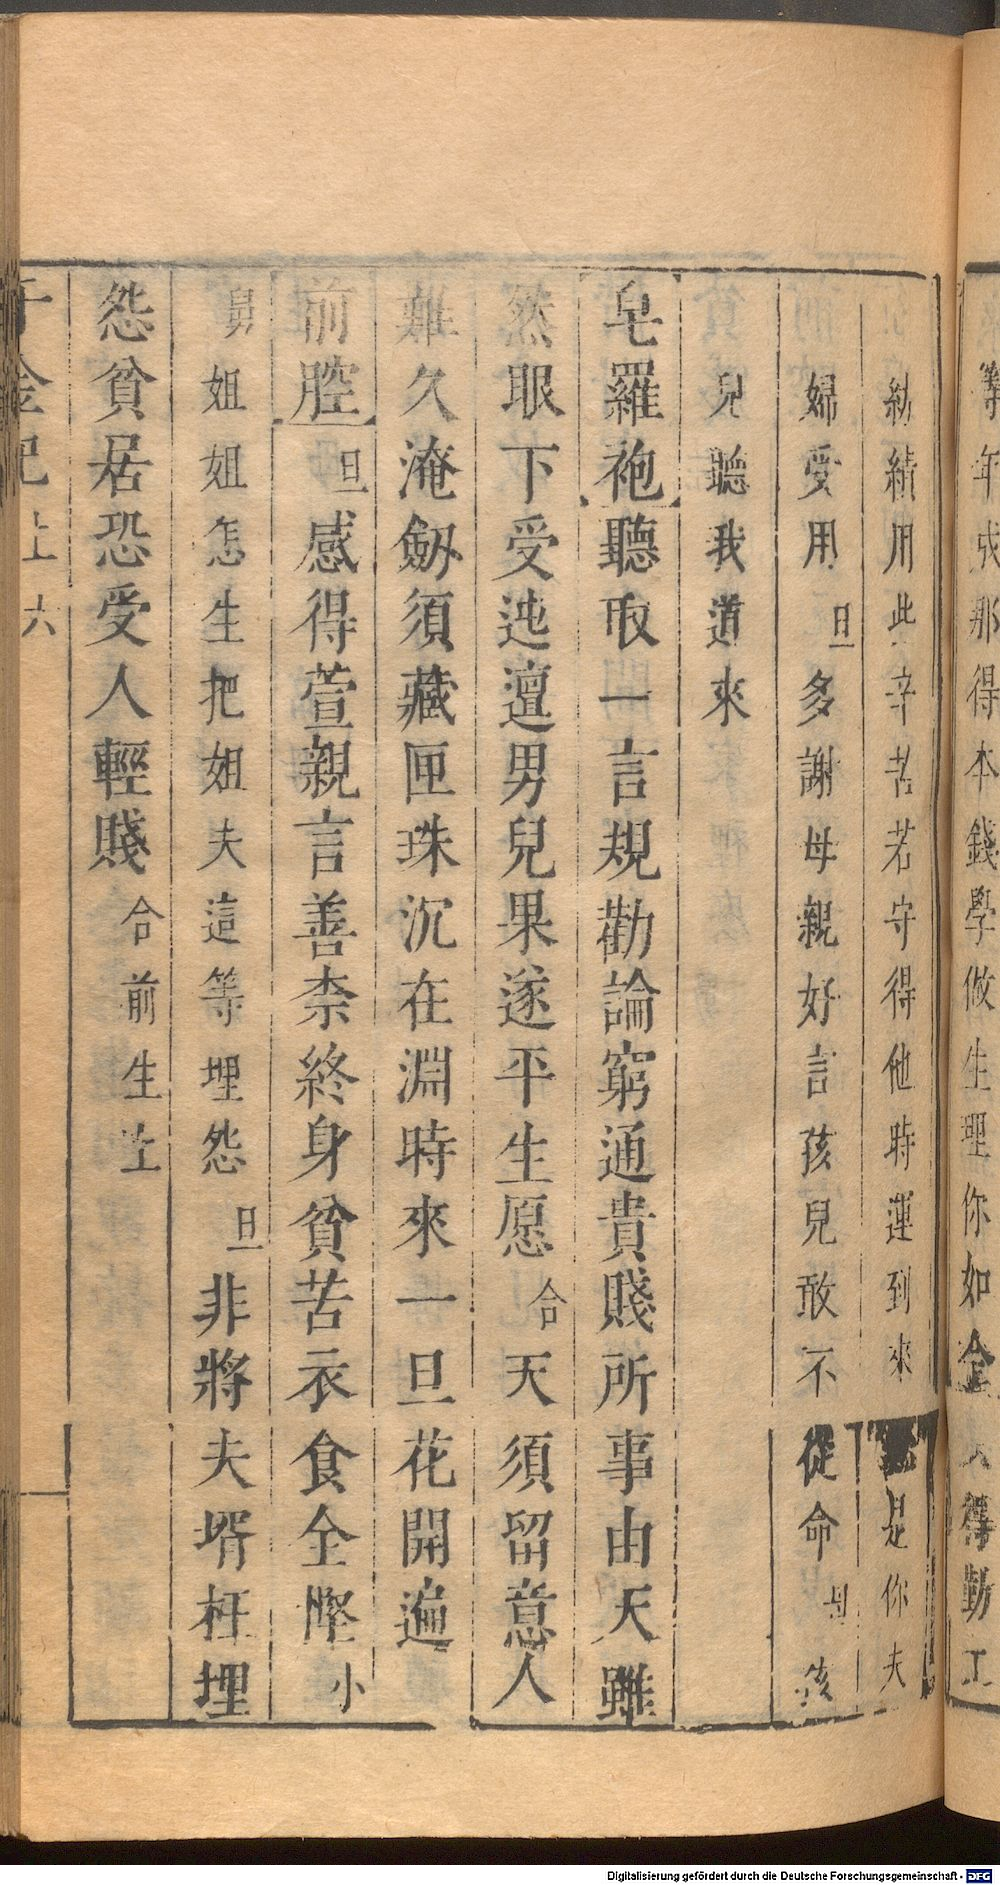 等年成那得本錢學做生理你如今 得勤工
紡績用此辛苦若守得他時運到來 是你夫
婦受用旦多謝母親好言孩兒敢不從命旦孩
兒聽我道來
皂羅袍聽取一言規勸論窮通貴賤所事由天雖
然眼下受迍邅男兒果遂平生愿合天須留意人
難久淹劔須藏匣珠沉在淵時來一旦花開遍
前腔旦感得萱親言善柰終身貧苦衣食全慳小
舅姐姐怎生把姐夫這等埋怨旦非將夫壻枉埋
怨貧居恐受人輕賤合前生上
千金記 上 六
Digitalisierung gefördert durch die Deutsche Forschungsgemeinschaft - DFG